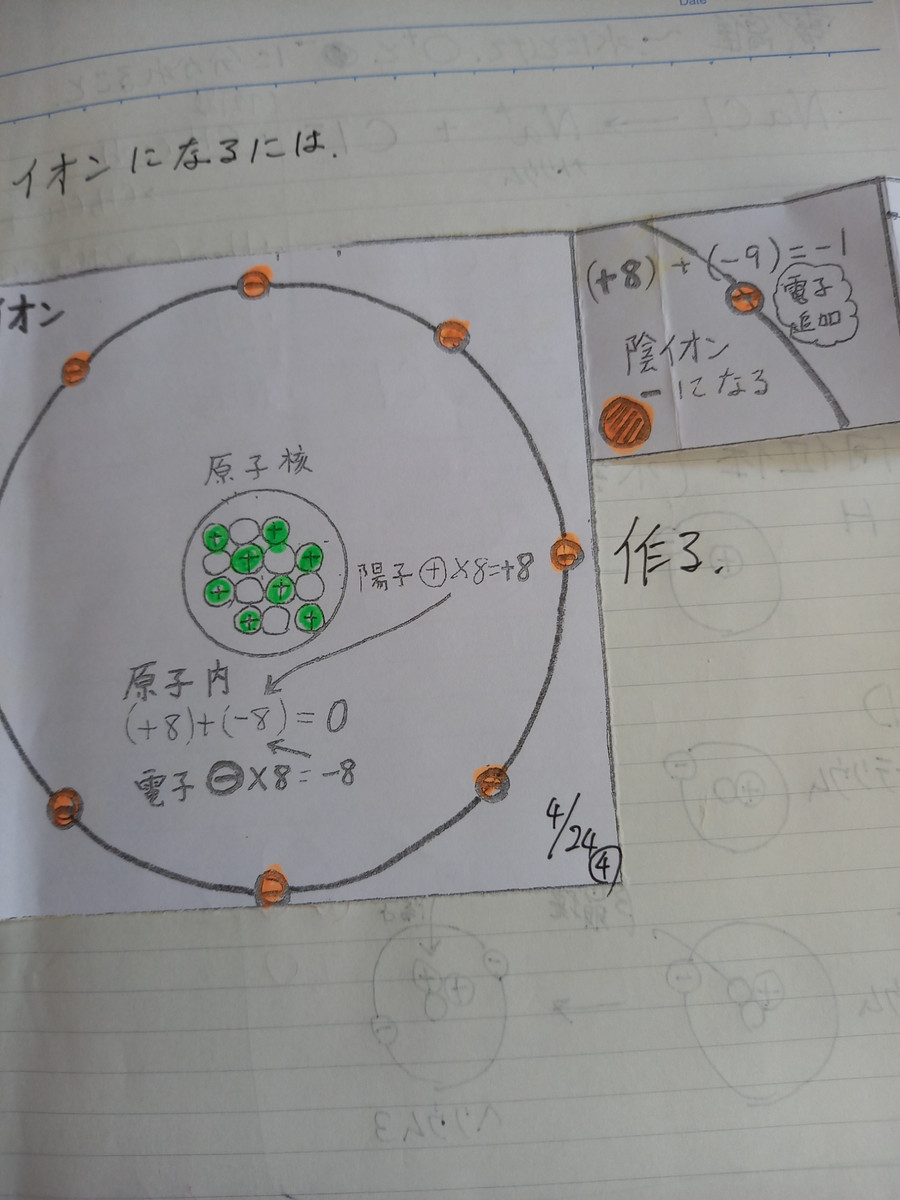 Date
イオンになるには.
イオン
(+8) + (-9) = -1
電子
追加
陰イオン
-になる
原子核
陽子⊕×8=+8
作る.
原子内
(+8)+(-8)=0
電子⊖×8=-8
4/24
④